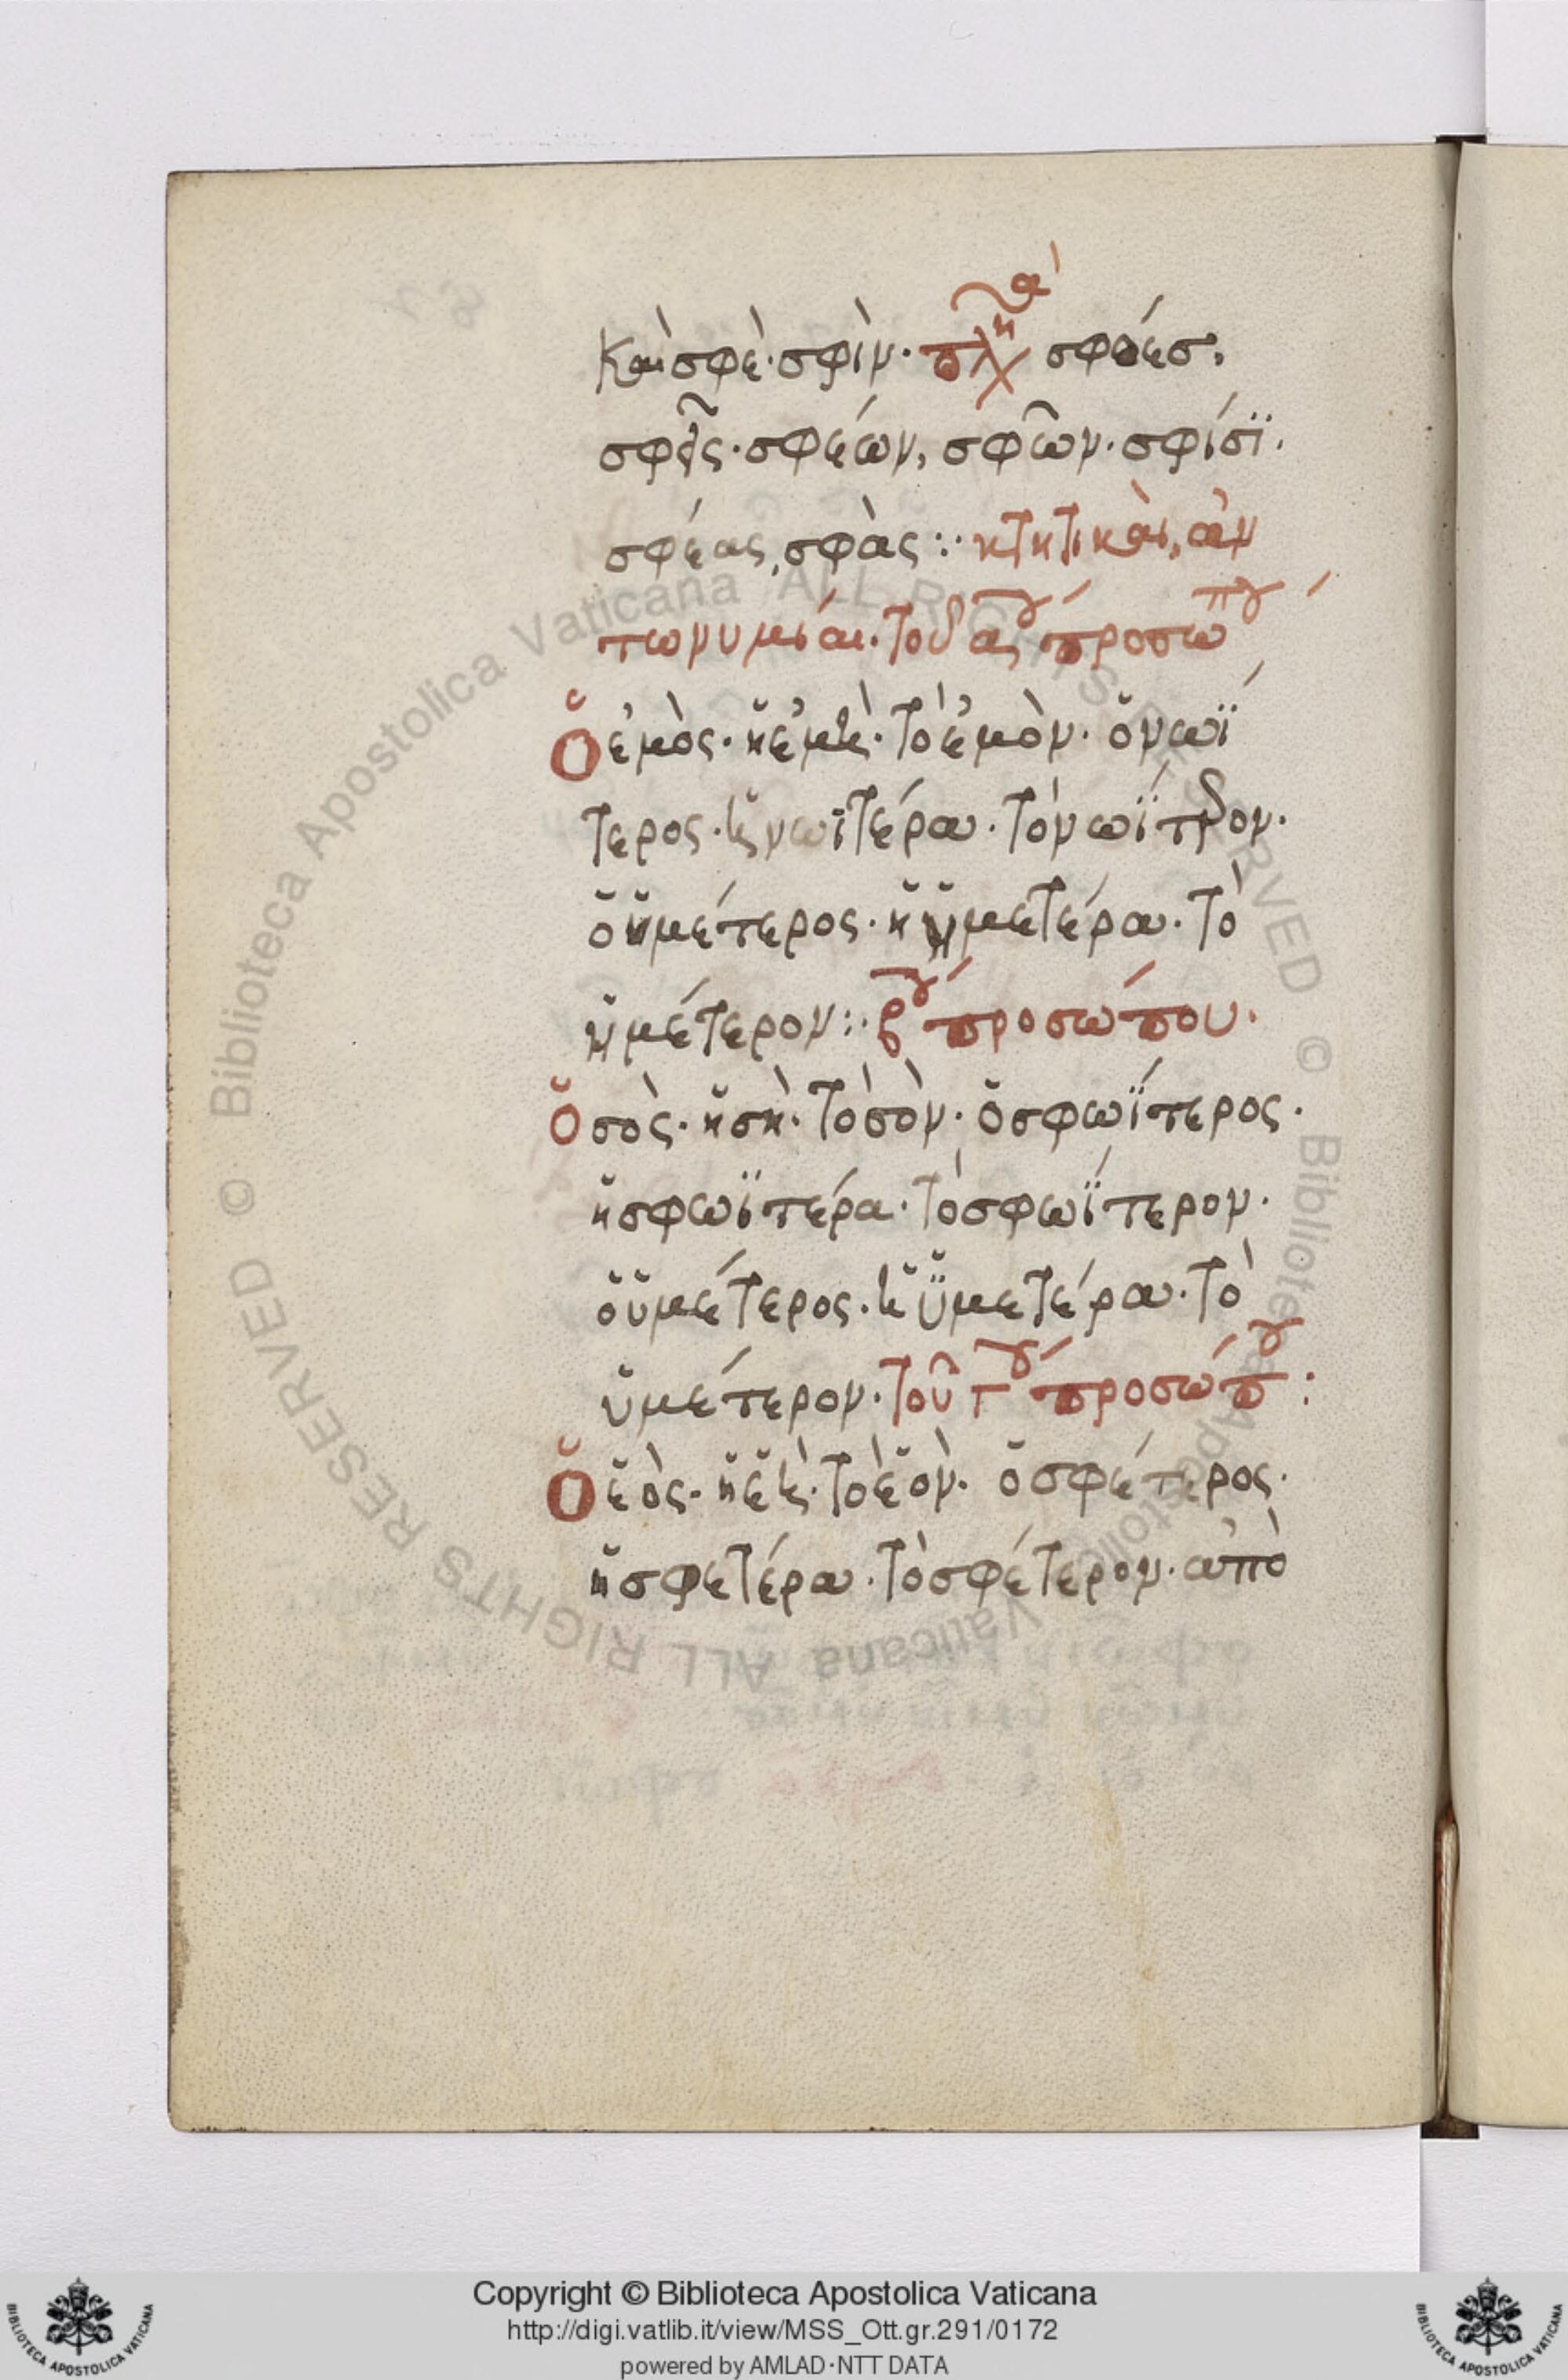 καὶ σφὲ· σφὶν· πληθ σφέες,
σφεῖς· σφέων, σφῶν· σφίσϊ·
σφέας, σφὰς:· κτητικαὶ, ἀν
τωνυμίαι· τοῦ α⸍ου προσώπου
Ὁ ἐμὸς· ἡ ἐμὴ· τὸ ἐμὸν· ὁ νωΐ
τερος· ἡ νωϊτέρα· τὸ νωΐτερον·
ὁ ἡμέτερος· ἡ ἡμετέρα· τὸ
ἡμέτερον:· βου προσώπου·
Ὁ σὸς· ἡ σὴ· τὸ σὸν· ὁ σφωΐτερος·
ἡ σφωϊτέρα· τὸ σφωΐτερον·
ὁ ὑμέτερος· ἡ ὑμετέρα· τὸ
ὑμέτερον· τοῦ γου προσώπου:
Ὁ ἑὸς· ἡ ἑὴ· τὸ ἑὸν· ὁ σφέτερος·
ἡ σφετέρα· τὸ σφέτερον· ἀπὸ
© Biblioteca Apostolica Vaticana ALL RIGHTS RESERVED © Biblioteca Apostolica Vaticana ALL RIGHTS RESERVED
Copyright © Biblioteca Apostolica Vaticana
http://digi.vatlib.it/view/MSS_Ott.gr.291/0172
powered by AMLAD·NTT DATA
BIBLIOTECA APOSTOLICA VATICANA
BIBLIOTECA APOSTOLICA VATICANA